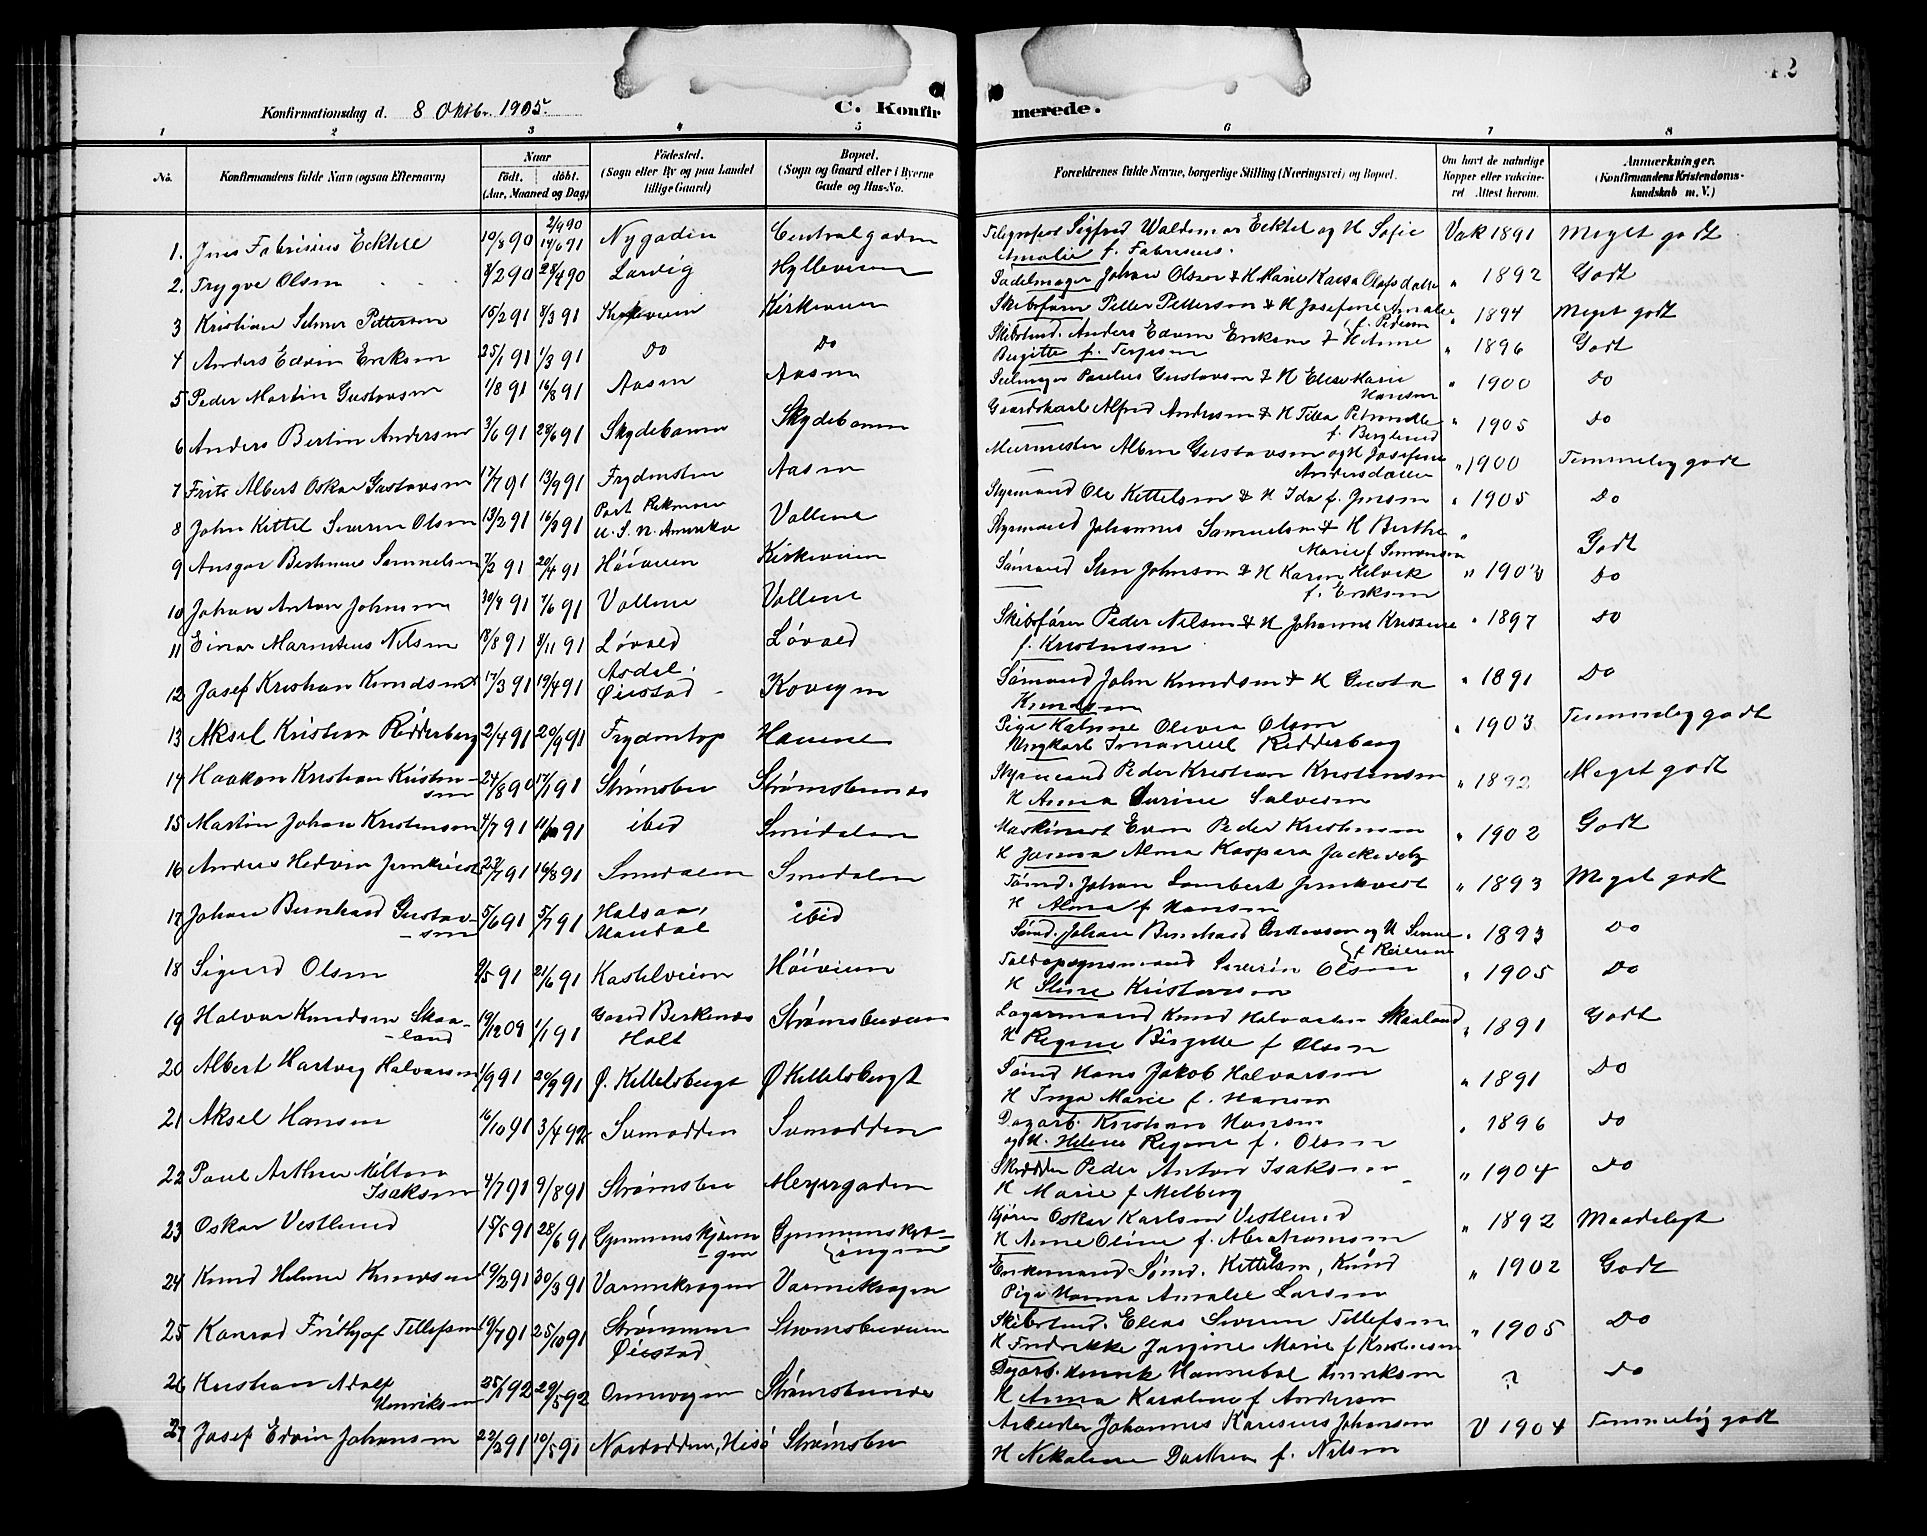 12
Konfirmationsdag d. 8 Oktbr. 1905.
C. Konfirmerede.
1 2 3 4 5 6 7 8
No. Konfirmandens fulde Navn (ogsaa Efternavn)
Naar født. døbt. (Aar, Maaned og Dag)
Fødested. (Sogn eller By og paa Landet tillige Gaard)
Bopæl. (Sogn og Gaard eller i Byerne Gade og Hus-No.
Forældrenes fulde Navne, borgerlige Stilling (Næringsvei) og Bopæl.
Om havt de naturlige Kopper eller vaccineret Attest herom.
Anmærkninger. (Konfirmandens Kristendomskundskab m. V.)
1. Jens Fabrisius Ecktell 10/8 90 2/9 90 14/6 91 Nygaden Centralgaden Sigfred Waldemar Ecktel og H Sofie Vak 1891 Meget godt
Amalie f. Fabrisius.
2. Trygve Olsen 3/2 90 Larvig Hylleveien Sadelmager Johan Olsen & H Marie Olafsdatter " 1892 Godt
3 Kristian Selmer Pettersen 15/2 91 8/3 91 Kirkeveien Kirkeveien Skibsfører Petter Pettersen & H Josefine Amalie " 1894 Meget godt
f. Pedersen
4 Anders Edvin Eriksen 25/1 91 1/3 91 Do Do Anders Edvin Eriksen & H Anne " 1896 Godt
Birgitte f. Terjesen
5 Peder Martin Gustavsen 1/8 91 16/8 91 Aasen Aasen Seilmager Gustavsen & H Elise Marie " 1900 Do
Hansen
6 Anders Bertin Andersen 3/6 91 28/6 91 Skydebanen Skydebanen Gaardskarl Alfred Andersen & H " 1905 Do
f. Berglund
7 Frits Albert Oskar Gustavsen 17/7 91 13/9 91 Aasen Murmester Gustavsen og H Josefine " 1900 Temmelig godt
Andersdatter
8 John Kittel Severin Olsen 13/2 91 Port U. S. N. Amerika Vollene Styrmand Ole Kittelsen & H Ida f. Jensen " 1905 Do
9 Ansgar Samuelsen 7/2 91 20/4 91 Høiveien Kirkeveien Styrmand Johannes Samuelsen & H Berthe " Godt
Marie f Simonsen
10 Johan Anton Johnsen 30/4 91 7/6 91 Vollene Vollene Sømand Johnsen & H Karen " Do
f. Eriksen
11 Einar Nilsen 18/8 91 8/11 91 Løvold Løvold Skibsfører Peder Nilsen & H Johanne Kristine " 1897 Do
f. Kristensen
12 Josef Kristian Knudsen 17/3 91 19/4 91 Øiestad Sømand John Knudsen & H Gusta " 1891 Do
Knudsen
13 Aksel Kristian Ridderberg 2/4 91 20/9 91 Frydentop Havene Pige Olivia Olsen " 1903 Temmelig godt
Ungkarl Imanuel Ridderberg
14 Haakon Kristian Kristensen 24/8 90 17/1 91 Strømsbu Strømsbunes Styrmand Peder Kristian Kristensen " 1892 Meget godt
H Anna Serine Salvesen
15 Martin Johan Kristensen 4/7 91 11/10 91 ibid Smidalen Maskinist Even Peder Kristensen " 1902 Godt
H Janna Alma Kaspara
16 Anders Hedvin 16/8 91 Smedalen Smedalen Tømd. Johan Lambert " 1893 Meget godt
H Alma f Hansen
17 Johan Bernhard Gustavsen 5/6 91 5/7 91 Halsaa, Mandal ibid Sømd. Johan Bernhard Gustavsen og H " 1893 Do
18 Sigurd Olsen 21/6 91 Kastelveien Høiveien Toldopsynsmand Severin Olsen " 1905 Do
H Stine Kristensen
19 Halvor Knudsen Skaaland 1/1 91 Gaard Berkenes Holt Strømsbuveien Lagermand Knud Halvorsen Skaaland " 1891 Godt
H Regine Birgitte f Olsen
20 Albert Hartvig Halvorsen 1/9 91 20/9 91 Ø. Killelsbugt Ø Killelsbugt Sømd Hans Jakob Halvorsen " 1891 Do
H Inga Marie f. Hansen
21 Aksel Hansen 16/10 91 3/4 92 Sumodden Sumodden Dagarb. Kristian Hansen " 1896 Do
og H. Helene Regine f. Olsen
22 Paul Arthur Milton Isaksen 4/7 91 9/8 91 Strømsbu Meyergaden Skrædder Peder Anton Isaksen " 1904 Do
H Marie f Melberg
23 Oskar Vestlund 15/5 91 28/6 91 Kjører Oskar Karlsen Vestlund " 1892 Maadeligt
H Anne Oline f. Abrahamsen
24 Knud Helmer Knudsen 19/2 91 30/3 91 Varmekrogen Varmekrogen Enkemand Sømd. Kittelsen, Knud " 1902 Godt
Pige Hanna Amalie Larsen
25 Konrad Frithjof Tellefsen 19/7 91 25/10 91 Strømmen Øiestad Strømsbuveien Skibstmd. Elias Severin Tellefsen " 1905 Do
H Fredrikke Jørgine Marie f Kristensen
26 Kristian Adolf Henriksen 25/1 92 29/5 92 Strømsbunes Dagarb. Henrik Hannibal Henriksen ? Do
H Anna Karoline f Andersen
27 Josef Edvin Johansen 22/2 91 10/5 91 Nordodden, Hisø Strømsbu Arbeider Johannes Johansen V 1904 Temmelig godt
H Nikoline Dorthea f. Nilsen